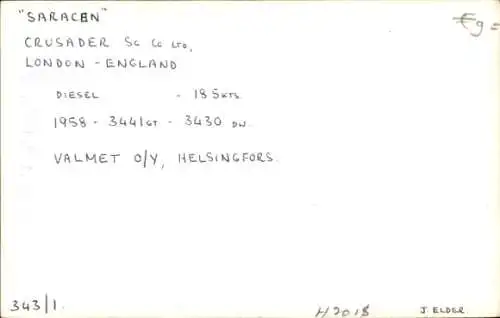 "SARACEN"
€9 =
CRUSADER SG Co LTD,
LONDON - ENGLAND
DIESEL - 18 5KTS.
1958 - 3441 GT - 3430 DW.
VALMET O/Y, HELSINGFORS.
343/1.
H2018
J. ELDER.